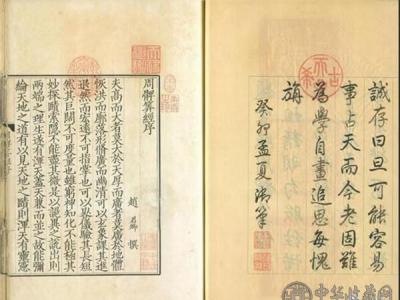 誠存曰旦可能容易
事占天而今老固難
為學自畫追思每愧
旃
癸卯孟夏御筆
古希天子
周髀算經序
趙君卿
夫高而大者莫大於天厚而廣者莫廣於地體
恢洪而廓落形脩廣而幽清可以玄象課其進
退然而宏遠不可指掌也可以晷儀驗其長短
然其巨闊不可度量也雖窮神知化不能極其
妙探賾索隱不能盡其微是以詭異之說出則
兩端之理生遂有渾天蓋天兼而並之故能彌
綸天地之道有以見天地之賾則渾天有靈憲
中华收藏网